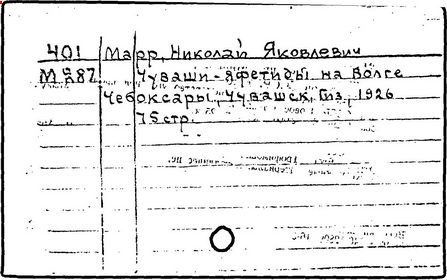 401 Марр, Николай Яковлевич
М 287 Чуваши-яфетиды на Волге
Чебоксары, Чувашск. Гиз, 1926
75 стр.